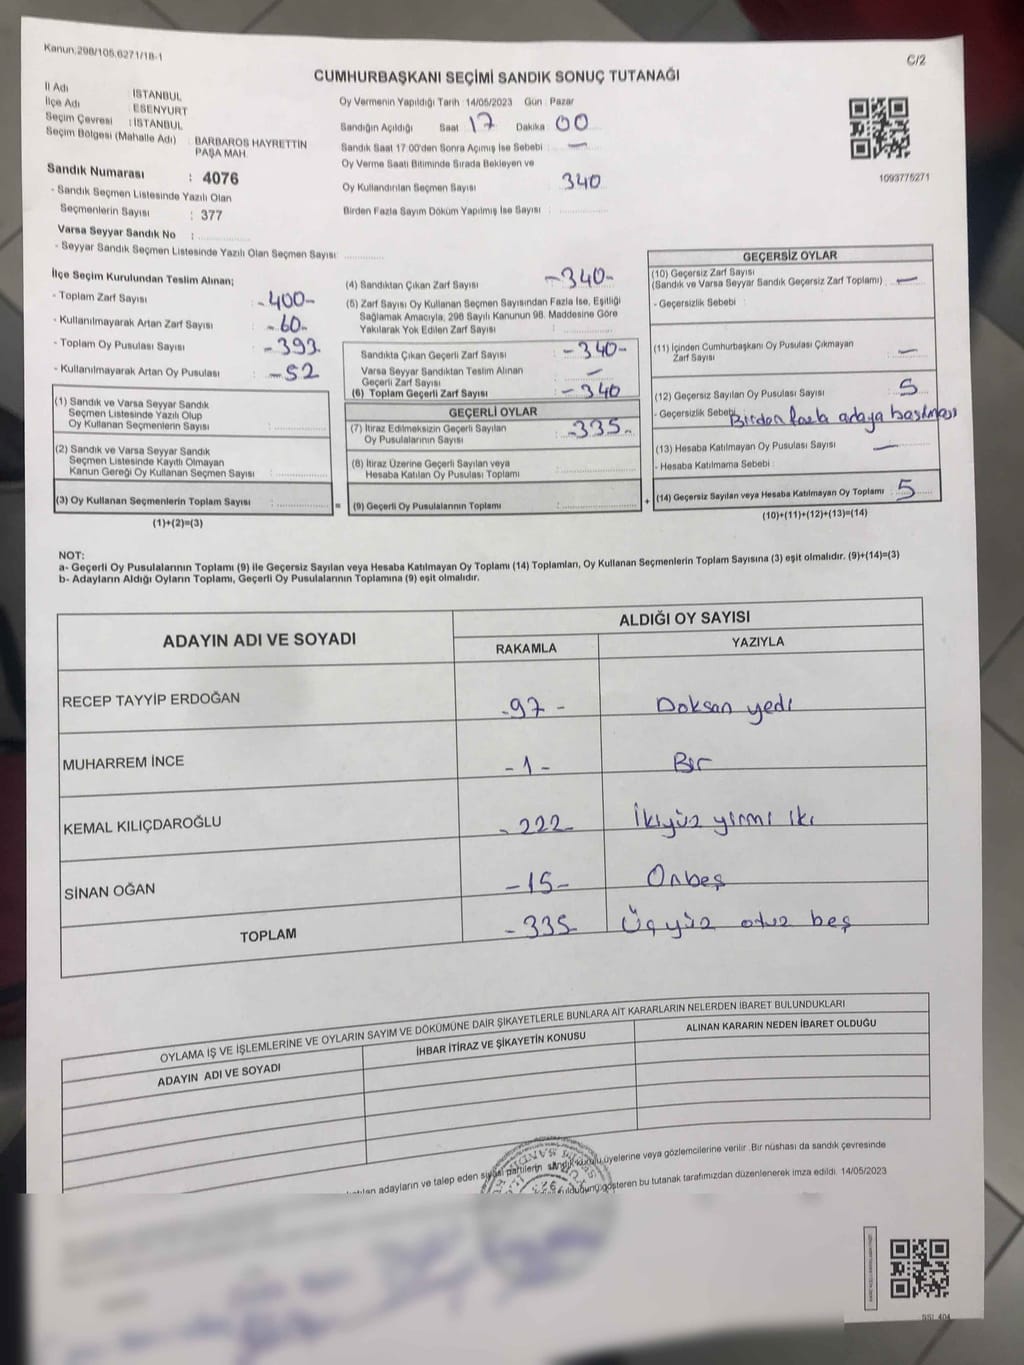 Kanun:298/105,6271/18-1
C/2
CUMHURBAŞKANI SEÇİMİ SANDIK SONUÇ TUTANAĞI
İl Adı : İSTANBUL
İlçe Adı : ESENYURT
Seçim Çevresi : İSTANBUL
Seçim Bölgesi (Mahalle Adı) : BARBAROS HAYRETTİN
PAŞA MAH.
Sandık Numarası : 4076
- Sandık Seçmen Listesinde Yazılı Olan
Seçmenlerin Sayısı : 377
Varsa Seyyar Sandık No :
- Seyyar Sandık Seçmen Listesinde Yazılı Olan Seçmen Sayısı:
Oy Vermenin Yapıldığı Tarih :14/05/2023 Gün : Pazar
Sandığın Açıldığı Saat 17 Dakika: 00
Sandık Saat 17.00'den Sonra Açımış İse Sebebi : —
Oy Verme Saati Bitiminde Sırada Bekleyen ve
Oy Kullandırılan Seçmen Sayısı : 340
Birden Fazla Sayım Döküm Yapılmış İse Sayısı :
1093775271
İlçe Seçim Kurulundan Teslim Alınan;
- Toplam Zarf Sayısı : -400-
- Kullanılmayarak Artan Zarf Sayısı : -60-
- Toplam Oy Pusulası Sayısı : -393-
- Kullanılmayarak Artan Oy Pusulası : -52
(1) Sandık ve Varsa Seyyar Sandık
Seçmen Listesinde Yazılı Olup
Oy Kullanan Seçmenlerin Sayısı :
(2) Sandık ve Varsa Seyyar Sandık
Seçmen Listesinde Kayıtlı Olmayan
Kanun Gereği Oy Kullanan Seçmen Sayısı :
(3) Oy Kullanan Seçmenlerin Toplam Sayısı :
(1)+(2)=(3)
(4) Sandıktan Çıkan Zarf Sayısı : -340-
(5) Zarf Sayısı Oy Kullanan Seçmen Sayısından Fazla İse, Eşitliği
Sağlamak Amacıyla, 298 Sayılı Kanunun 98. Maddesine Göre
Yakılarak Yok Edilen Zarf Sayısı :
Sandıkta Çıkan Geçerli Zarf Sayısı : -340-
Varsa Seyyar Sandıktan Teslim Alınan
Geçerli Zarf Sayısı : —
(6) Toplam Geçerli Zarf Sayısı : -340
GEÇERLİ OYLAR
(7) İtiraz Edilmeksizin Geçerli Sayılan
Oy Pusulalarının Sayısı : -335-
(8) İtiraz Üzerine Geçerli Sayılan veya
Hesaba Katılan Oy Pusulası Toplamı :
= (9) Geçerli Oy Pusulalarının Toplamı : +
GEÇERSİZ OYLAR
(10) Geçersiz Zarf Sayısı
(Sandık ve Varsa Seyyar Sandık Geçersiz Zarf Toplamı) : —
- Geçersizlik Sebebi :
(11) İçinden Cumhurbaşkanı Oy Pusulası Çıkmayan
Zarf Sayısı : —
(12) Geçersiz Sayılan Oy Pusulası Sayısı : 5
- Geçersizlik Sebebi Birden fazla adaya basılması
(13) Hesaba Katılmayan Oy Pusulası Sayısı : —
- Hesaba Katılmama Sebebi :
(14) Geçersiz Sayılan veya Hesaba Katılmayan Oy Toplamı : 5
(10)+(11)+(12)+(13)=(14)
NOT:
a- Geçerli Oy Pusulalarının Toplamı (9) ile Geçersiz Sayılan veya Hesaba Katılmayan Oy Toplamı (14) Toplamları, Oy Kullanan Seçmenlerin Toplam Sayısına (3) eşit olmalıdır. (9)+(14)=(3)
b- Adayların Aldığı Oyların Toplamı, Geçerli Oy Pusulalarının Toplamına (9) eşit olmalıdır.
ADAYIN ADI VE SOYADI ALDIĞI OY SAYISI
RAKAMLA YAZIYLA
RECEP TAYYİP ERDOĞAN -97- Doksan yedi
MUHARREM İNCE -1- Bir
KEMAL KILIÇDAROĞLU -222- İkiyüz yirmi iki
SİNAN OĞAN -15- Onbeş
TOPLAM -335- Üçyüz otuz beş
OYLAMA İŞ VE İŞLEMLERİNE VE OYLARIN SAYIM VE DÖKÜMÜNE DAİR ŞİKAYETLERLE BUNLARA AİT KARARLARIN NELERDEN İBARET BULUNDUKLARI
ADAYIN ADI VE SOYADI İHBAR İTİRAZ VE ŞİKAYETİN KONUSU ALINAN KARARIN NEDEN İBARET OLDUĞU
adayların ve talep eden siyasi partilerin sandık kurulu üyelerine veya gözlemcilerine verilir. Bir nüshası da sandık çevresinde
olduğunu gösteren bu tutanak tarafımızdan düzenlenerek imza edildi. 14/05/2023